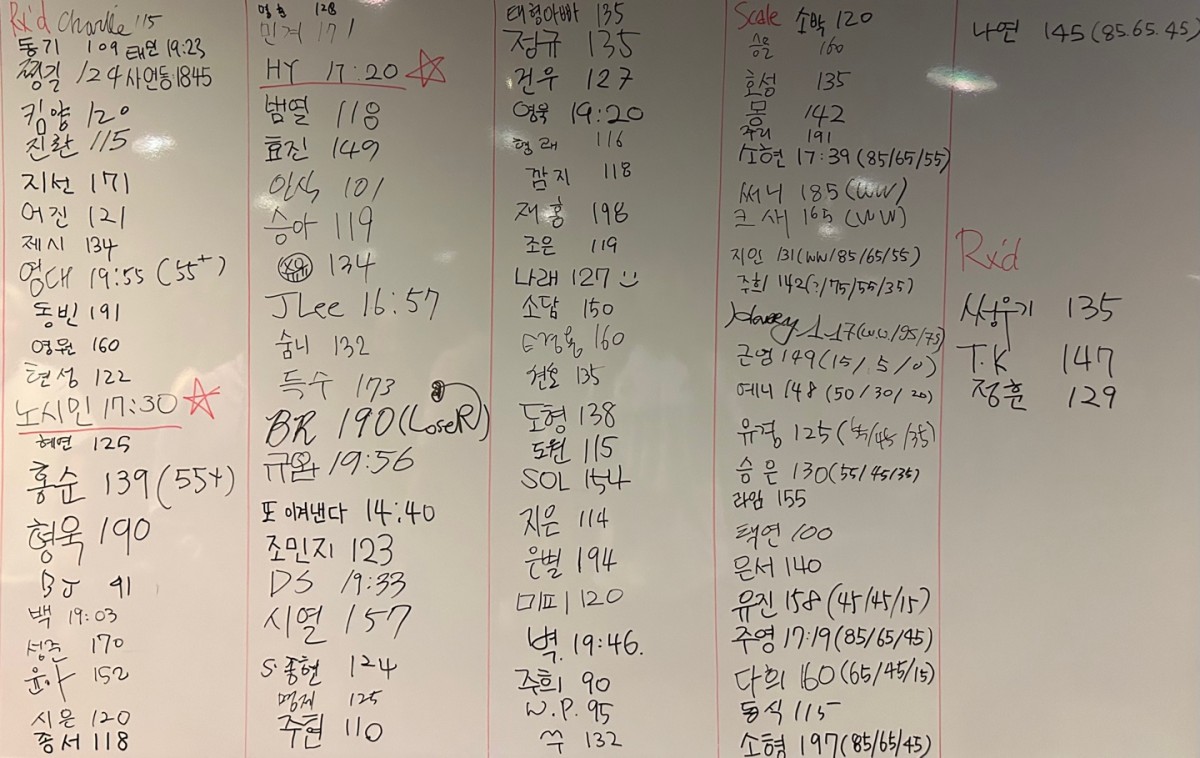 Rx'd Charlie 115
동기 109 태연 19:23
찡길 124 사언동 1845
킴양 120
진환 115
지선 171
어진 121
제시 134
영대 19:55 (55+)
동빈 191
영원 160
현성 122
노시민 17:30
혜연 125
홍순 139 (55+)
형욱 190
BJ 91
백 19:03
성준 170
윤아 152
시은 120
종서 118
128
민겨 171
HY 17:20
범열 118
효진 149
인식 101
승아 119
134
JLee 16:57
숨니 132
득수 173
BR 190 (LoseR)
19:56
또 이겨낸다 14:40
조민지 123
DS 19:33
시열 157
S.종현 124
명제 125
주현 110
태형아빠 135
정규 135
건우 127
영욱 19:20
형래 116
감지 118
재홍 198
조은 119
나래 127
소담 150
160
건호 135
도형 138
도원 115
SOL 154
지은 114
은별 194
미피 120
벽. 19:46.
주희 90
W.P. 95
쑤 132
Scale 소박 120
승은 160
효성 135
몽 142
주리 191
소현 17:39 (85/65/55)
써니 185 (WW)
크새 165 (WW)
지인 131 (WW/85/65/55)
주희 142 (?/75/55/35)
117 (W.W/95/75)
근영 149 (15/.5/0)
예니 148 (50/30/20)
유경 125
승은 130 (55/45/35)
라임 155
택연 100
은서 140
유진 158 (45/45/15)
주영 17:19 (85/65/45)
다희 160 (65/45/15)
동식 115
소형 197 (85/65/45)
나연 145 (85.65.45)
Rx'd
135
T.K 147
정훈 129